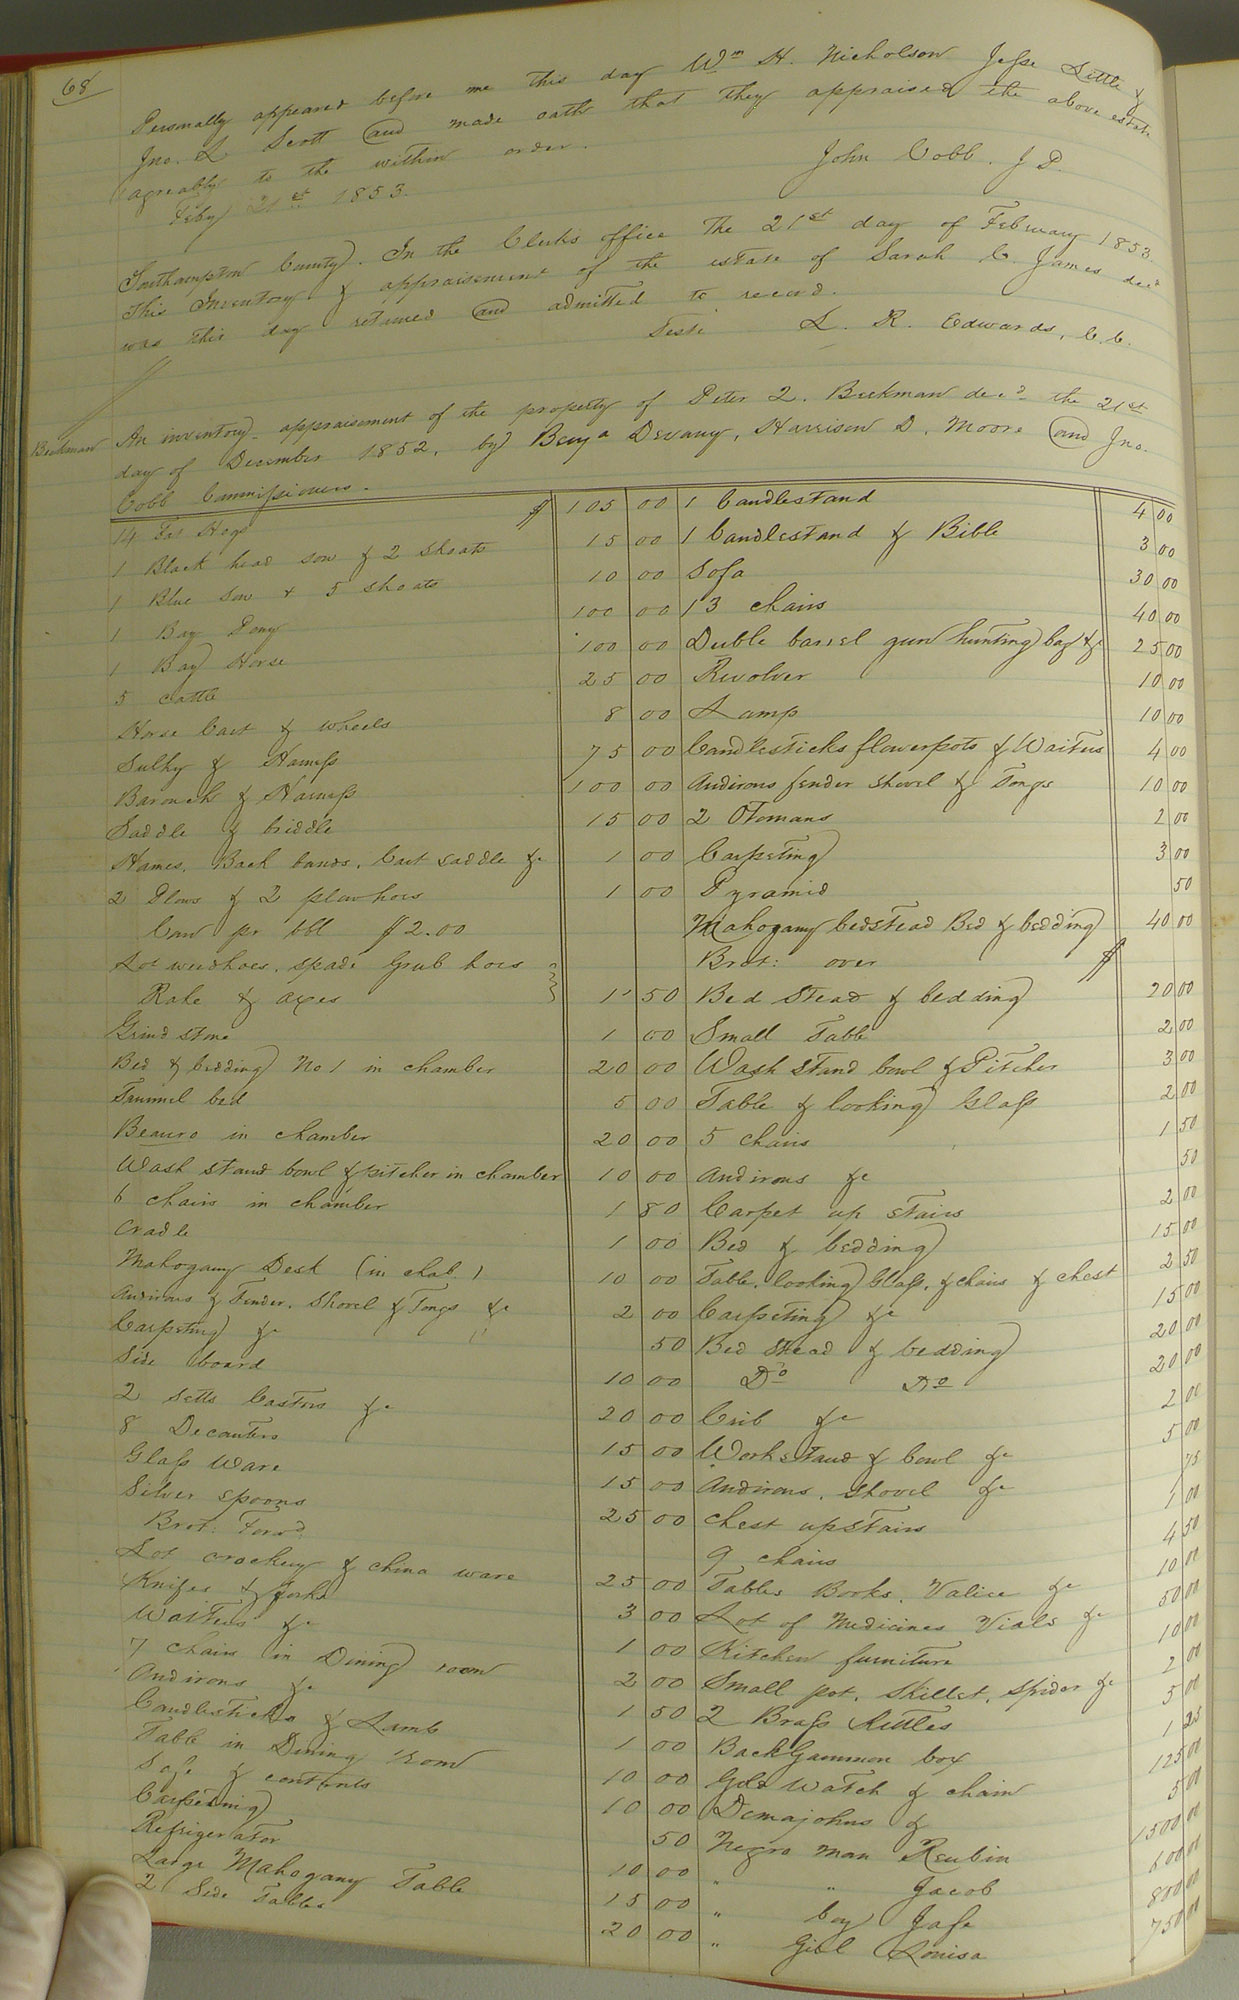 68
Personally appeared before me this day Wm H. Nicholson Jesse Little &
Jno. L Scott and made oath that they appraised the above estate
agreably to the within order.
John Cobb. J P.
Feby 21st 1853.
Southampton County. In the Clerks office the 21st day of February 1853.
This Inventory & appraisement of the estate of Sarah C. James decd
was this day returned and admitted to record.
Teste L. R. Edwards, C. C.
Beekman
An inventory appraisement of the property of Peter Q. Beekman decd the 21st
day of December 1852, by Benja Devany, Harrison D. Moore and Jno.
Cobb Commissioners.
14 Fat Hogs $ 105 00
1 Black head sow & 2 shoats 15 00
1 Blue Sow & 5 shoats 10 00
1 Bay Pony 100 00
1 Bay Horse 100 00
5 cattle 25 00
Horse Cart & wheels 8 00
Sulky & Harness 75 00
Barouch & Harness 100 00
Saddle & briddle 15 00
Hames, Back bands, Cart saddle &c 1 00
2 Plows & 2 plowhoes 1 00
Corn pr bbl $2.00
Lot weedhoes, spade Grub hoes
Rake & axes 1 50
Grind stone 1 00
Bed & bedding No 1 in chamber 20 00
Trunnel bed 5 00
Beauro in chamber 20 00
Wash stand bowl & pitcher in chamber 10 00
6 chairs in chamber 1 80
Cradle 1 00
Mahogany Desk (in chab.) 10 00
Andirons & Fender, Shovel & Tongs &c 2 00
Carpeting &c 50
Side board 10 00
2 setts Castors &c 20 00
8 Decanters 15 00
Glass Ware 15 00
Silver spoons 25 00
Brot: Forwd:
Lot crockery & china ware 25 00
Knifes & forks 3 00
Waiters &c 1 00
7 chairs in Dining room 2 00
Andirons &c 1 50
Candlesticks & Lamb 1 00
Table in Dining room 10 00
Safe & contents 10 00
Carpeting 50
Refrigerator 10 00
Large Mahogany Table 15 00
2 Side Tables 20 00
1 Candlestand 4 00
1 Candlestand & Bible 3 00
Sofa 30 00
13 chairs 40 00
Duble barrel gun hunting bag &c 25 00
Revolver 10 00
Lamp 10 00
Candlesticks flowerpots & Waiters 4 00
Andirons fender shovel & Tongs 10 00
2 Otomans 2 00
Carpeting 3 00
Pyramid 50
Mahogany bedstead Bed & bedding 40 00
Brot: over $
Bed Stead & bedding 20 00
Small Table 2 00
Wash Stand bowl & Pitcher 3 00
Table & looking Glass 2 00
5 chairs 1 50
Andirons &c 50
Carpet up stairs 2 00
Bed & bedding 15 00
Table, looking Glass, & chairs & chest 2 50
Carpeting &c 15 00
Bed Stead & bedding 20 00
Do Do 20 00
Crib &c 2 00
Workstand & bowl &c 5 00
Andirons, shovel &c 75
Chest upstairs 1 00
9 chairs 4 50
Tables Books, Valice &c 10 00
Lot of Medicines Vials &c 50 00
Kitchen furniture 10 00
Small pot, Skillet, Spider &c 2 00
2 Brass Kittles 5 00
BackGammon box 1 25
Gold Watch & chain 125 00
Demajohns & 5 00
Negro man Reubin 1500 00
" " Jacob 600 00
" boy Jasse 800 00
" Girl Louisa 750 00